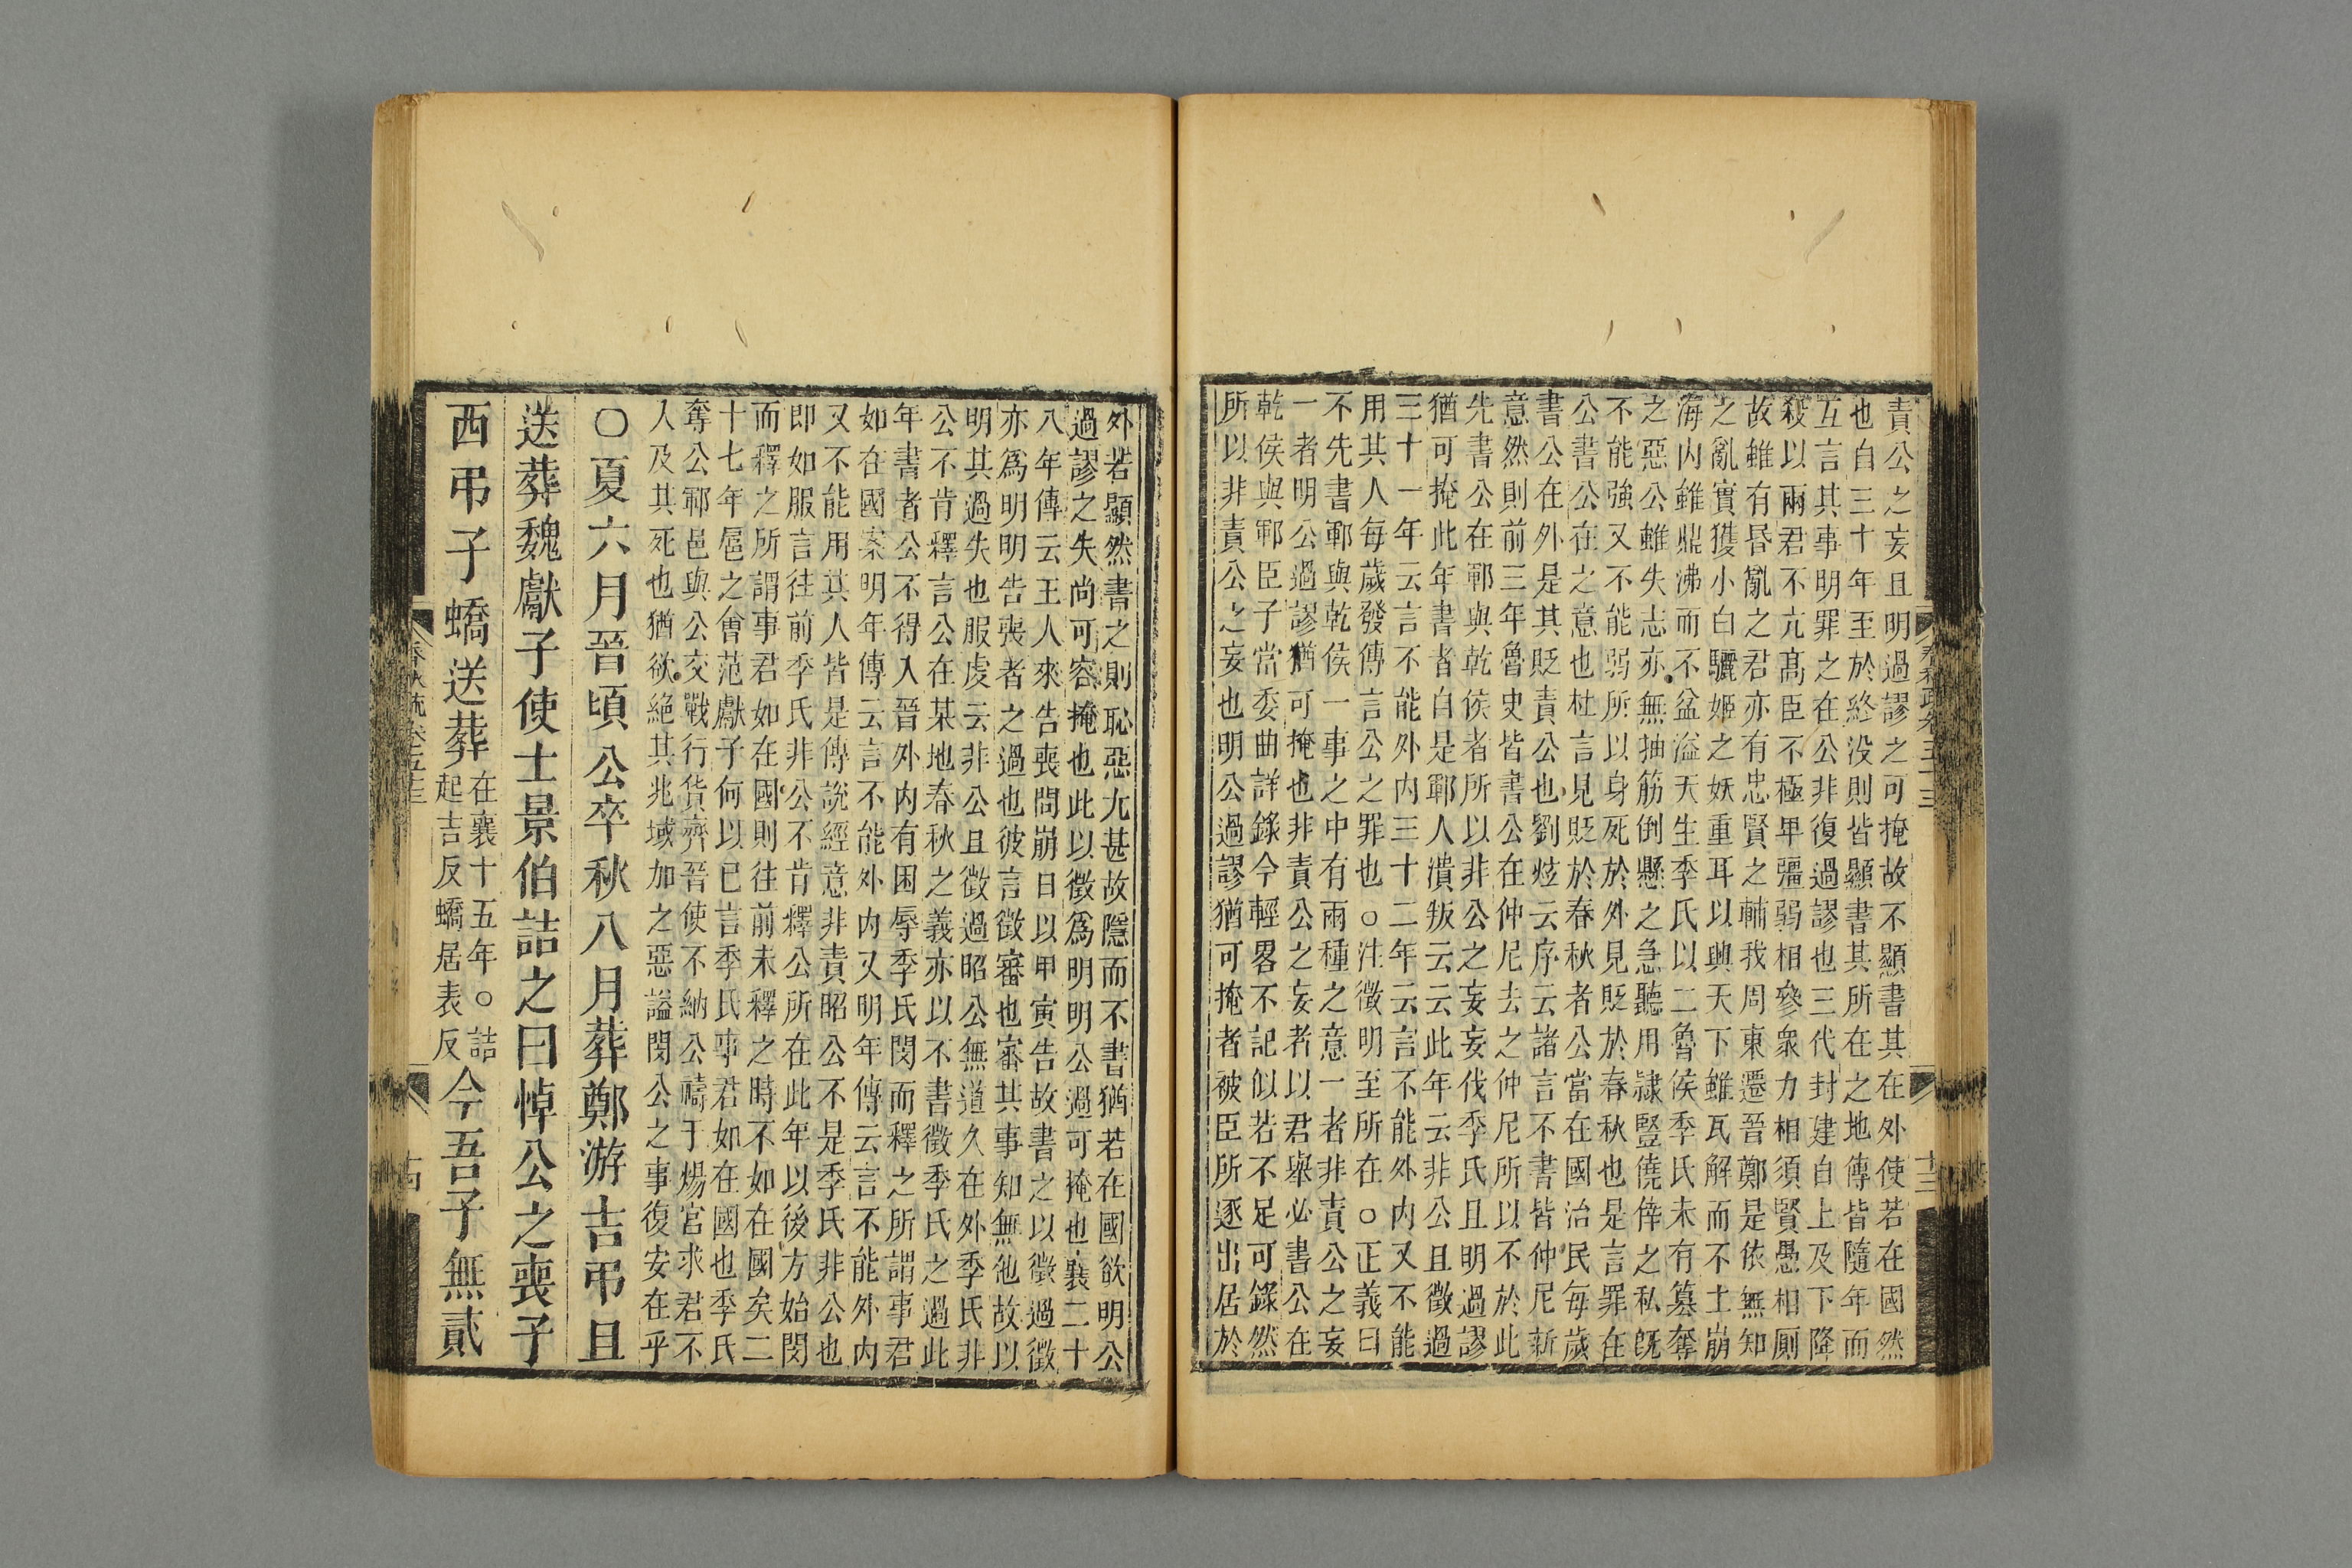 責公之妄且明過謬之可掩故不顯書其在外使若在國然
也自三十年至於終没則皆顯書其所在之地傳皆隨年而
互言其事明罪之在公非復過謬也三代封建自上及下降
殺以兩君不亢髙臣不極畢彊弱相參衆力相須賢愚相厠
故雖有昬亂之君亦有忠賢之輔我周東遷晉鄭是依無知
之亂實獲小白驪姬之妖重耳以興天下雖瓦解而不土崩
海内雖鼎沸而不盆溢天生季氏以二魯侯季氏未有篡奪
之惡公雖失志亦無抽筋倒懸之急聽用隷豎僥倖之私既
不能強又不能弱所以身死於外見貶於春秋也是言罪在
公書公在之意也杜言見貶於春秋者公當在國治民毎歲
書公在外是其貶責公也劉炫云序云諸言不書皆仲尼新
意然則前三年魯史皆書公在仲尼去之仲尼所以不於此
先書公在鄆與乾侯者所以非公之妄妄伐季氏且明過謬
猶可掩此年書者自是鄆人潰叛云云此年云非公且徵過
三十一年云言不能外内三十二年云言不能外内又不能
用其人毎歲發傳言公之罪也○注徵明至所在○正義曰
不先書鄆與乾侯一事之中有兩種之意一者非責公之妄
一者明公過謬猶可掩也非責公之妄者以君舉必書公在
乾侯與鄆臣子當委曲詳錄今輕畧不記似若不足可錄然
所以非責公之妄也明公過謬猶可掩者被臣所逐出居於
外若顯然書之則恥惡尢甚故隱而不書猶若在國欲明公
過謬之失尚可容掩也此以徵爲明明公過可掩也襄二十
八年傳云王人來告喪問崩日以甲寅告故書之以徵過徵
亦爲明明告喪者之過也彼言徵審也審其事知無他故以
明其過失也服虔云非公且徵過昭公無道久在外季氏非
公不肯釋言公在某地春秋之義亦以不書徵季氏之過此
年書者公不得入晉外内有困辱季氏閔而釋之所謂事君
如在國案明年傳云言不能外内又明年傳云言不能外内
又不能用其人皆是傳說經意非責昭公不是季氏非公也
即如服言往前季氏非公不肯釋公所在此年以後方始閔
而釋之所謂事君如在國則往前未釋之時不如在國矣二
十七年扈之會范獻子何以已言季氏事君如在國也季氏
奪公鄆邑與公交戰行貨齊晉使不納公禱于煬宮求君不
人及其死也猶欲絶其兆域加之惡謚閔公之事復安在乎
○夏六月晉頃公卒秋八月葬鄭游吉弔且
送葬魏獻子使士景伯詰之曰悼公之喪子
西弔子蟜送葬在襄十五年○詰
起吉反蟜居表反今吾子無貳